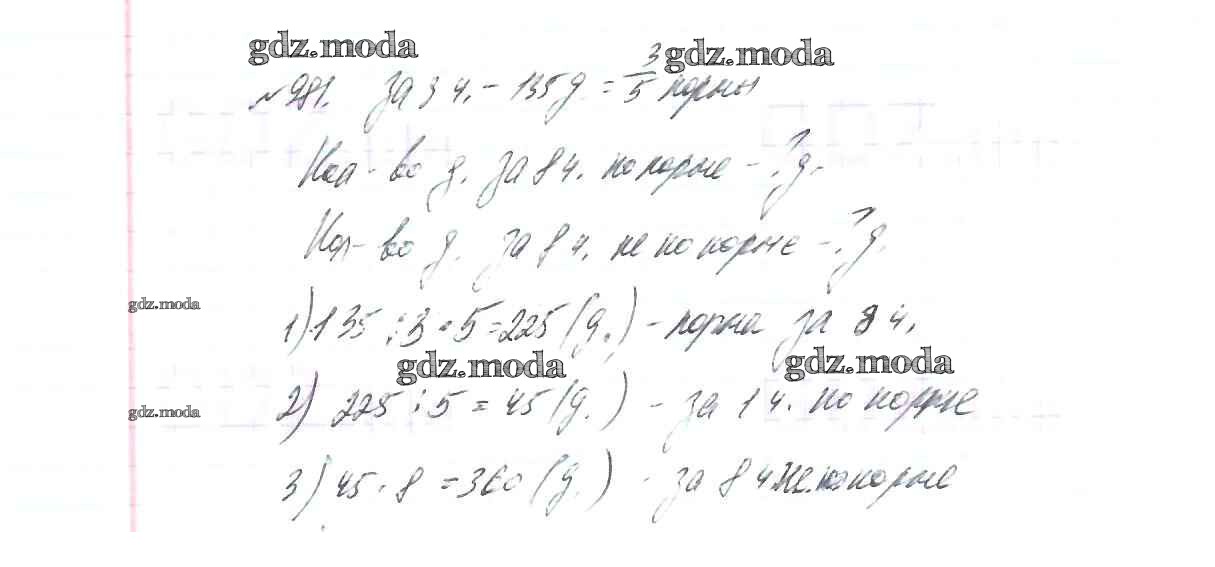 gdz.moda
gdz.moda
№ 981. за 3 ч. - 135 д. = 3/5 нормы
Кол-во д. за 8 ч. по норме - ? д.
Кол-во д. за 8 ч. не по норме - ? д.
gdz.moda
1) 135 : 3 · 5 = 225 (д.) - норма за 8 ч.
gdz.moda
gdz.moda
2) 225 : 5 = 45 (д.) - за 1 ч. по норме
gdz.moda
3) 45 · 8 = 360 (д.) - за 8 ч. не по норме